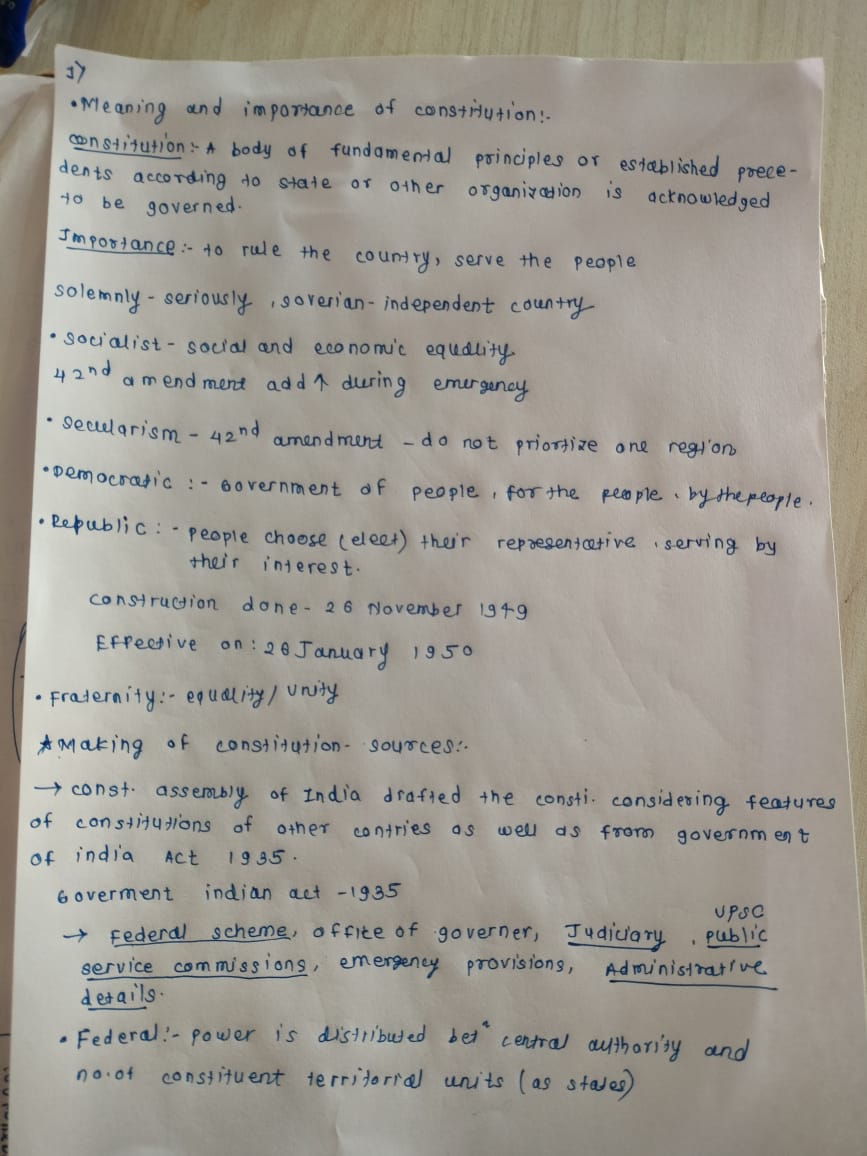 1)
• Meaning and importance of constitution:-
constitution:- A body of fundamental principles or established prece-
dents according to state or other organization is acknowledged
to be governed.
Importance:- to rule the country, serve the people
solemnly - seriously , soverian - independent country
• socialist - social and economic equality
42nd amendment add ↑ during emergency
• secularism - 42nd amendment - do not priortize one region
• Democratic :- Government of people , for the people , by the people .
• Republic :- people choose (elect) their representative , serving by
their interest.
construction done - 26 November 1949
Effective on : 26 January 1950
• Fraternity:- equality/ Unity
★ Making of constitution - sources:-
→ const. assembly of India drafted the consti. considering features
of constitutions of other contries as well as from government
of india Act 1935.
Goverment indian act - 1935
UPSC
→ Federal scheme, office of governer, Judiciary , public
service commissions, emergency provisions, Administrative
details.
• Federal:- power is distributed betn central authority and
no. of constituent territorial units (as states)